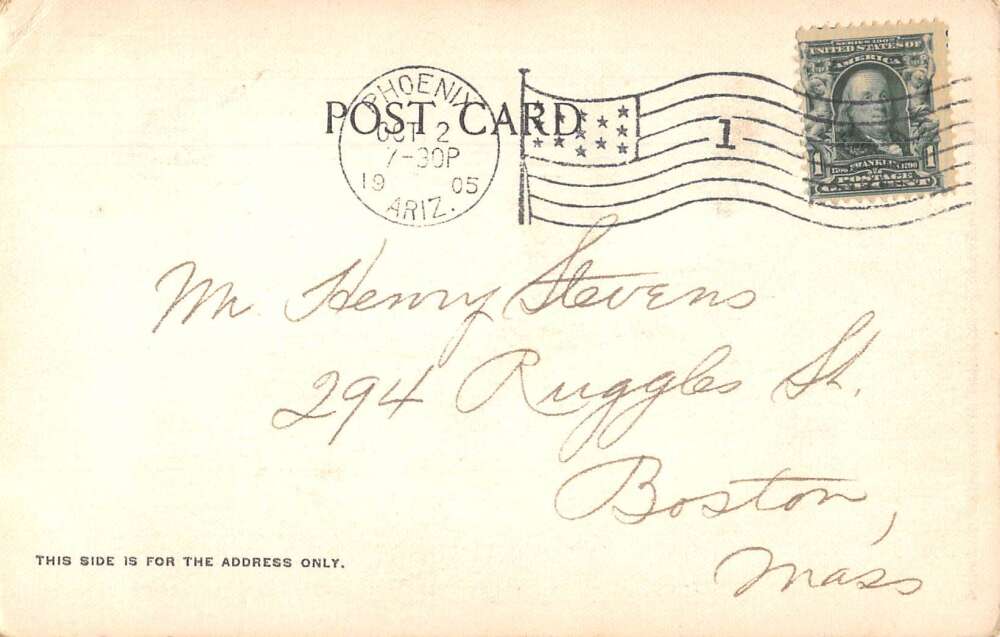 POST CARD
PHOENIX
OCT 2
7-30P
19 05
ARIZ.
1
SERIES 1902
UNITED STATES OF
AMERICA
1 FRANKLIN 1
POSTAGE
ONE CENT
Mr. Henry Stevens
294 Ruggles St.
Boston,
Mass
THIS SIDE IS FOR THE ADDRESS ONLY.